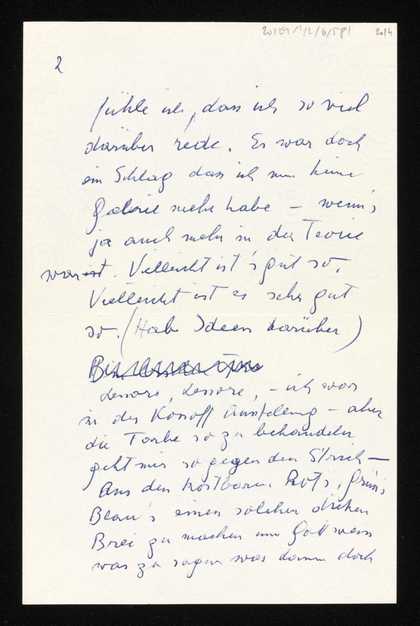 2
fühle ich, dass ich so viel
darüber rede. Es war doch
ein Schlag dass ich nun keine
Galerie mehr habe – wenn's
ja auch mehr in der Teorie
war. Vielleicht ist's gut so.
Vielleicht ist es sehr gut
so. (Habe Ideen darüber)
Lenore, Lenore, – ich war
in der Kossoff Ausstellung – aber
die Farbe so zu behandeln,
geht mir so gegen den Strich –
Aus den kostbaren Rot's, Grün's
Blau's einen solchen dicken
Brei zu machen um Gott weiss
was zu sagen was dann doch